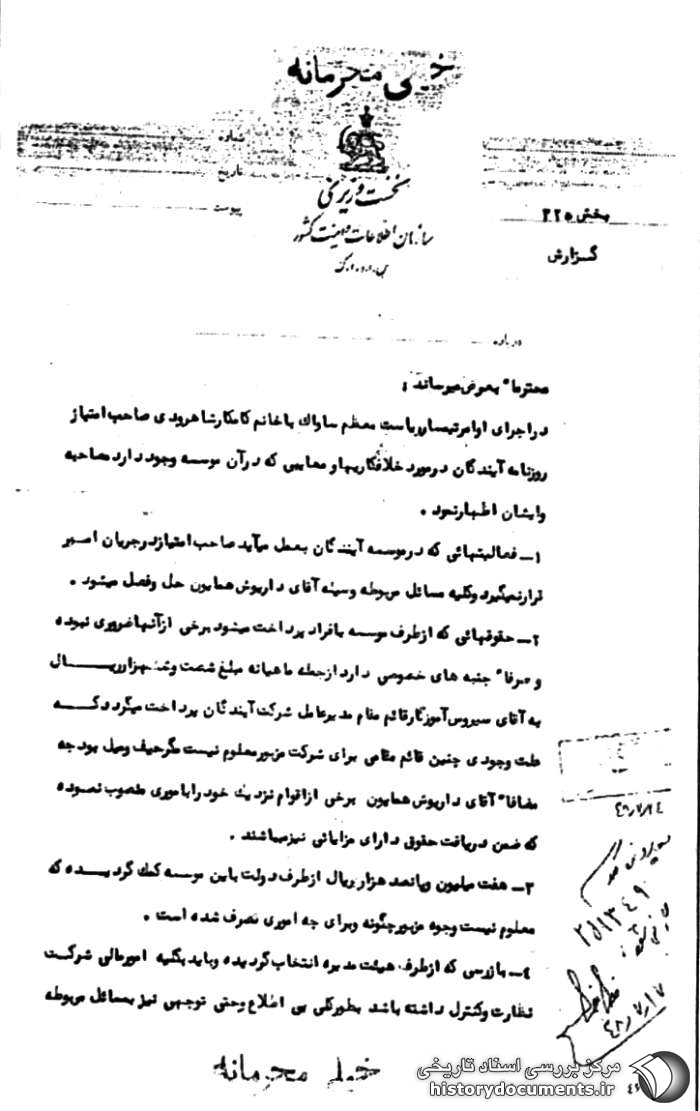 خیلی محرمانه
شماره
تاریخ
پیوست
نخست وزیری
سازمان اطلاعات و امنیت کشور
بخش ۲۲۵
گزارش
درباره
محترما" بعرض میرساند :
در اجرای اوامر تیمسار ریاست معظم ساواك با خانم کامکار شاهرودی صاحب امتیاز
روزنامه آیندگان در مورد خلافکاریها و معایبی که در آن موسسه وجود دارد مصاحبه
و ایشان اظهار نمود .
۱ـ فعالیتهائی که در موسسه آیندگان بعمل میآید صاحب امتیاز در جریان امــر
قرار نمیگیرد و کلیه مسائل مربوطه وسیله آقای داریوش همایون حل و فصل میشود .
۲ـ حقوقهائی که از طرف موسسه بافراد پرداخت میشود برخی از آنها ضروری نبوده
و صرفا" جنبه های خصوصی دارد از جمله ماهیانه مبلغ شصت و شش هزار ریــــال
به آقای سیروس آموزگار قائم مقام مدیر عامل شرکت آیندگان پرداخت میگردد کــه
علت وجودی چنین قائم مقامی برای شرکت مزبور معلوم نیست مگر حیف و میل بودجه
مضافا" آقای داریوش همایون برخی از اقوام نزدیك خود را باموری منصوب نمــوده
که ضمن دریافت حقوق دارای مزایائی نیز میباشند .
۳ـ هفت میلیون و پانصد هزار ریال از طرف دولت باین موسسه کمك گردیـــده که
معلوم نیست وجوه مزبور چگونه و برای چه اموری مصرف شده است .
۴ـ بازرسی که از طرف هیئت مدیره انتخاب گردیده و باید بکلیه امور مالی شرکــت
نظارت و کنترل داشته باشد بطور کلی بی اطلاع و حتی توجهی نیز بمسائل مربوطه
خیلی محرمانه
مرکز بررسی اسناد تاریخی
historydocuments.ir